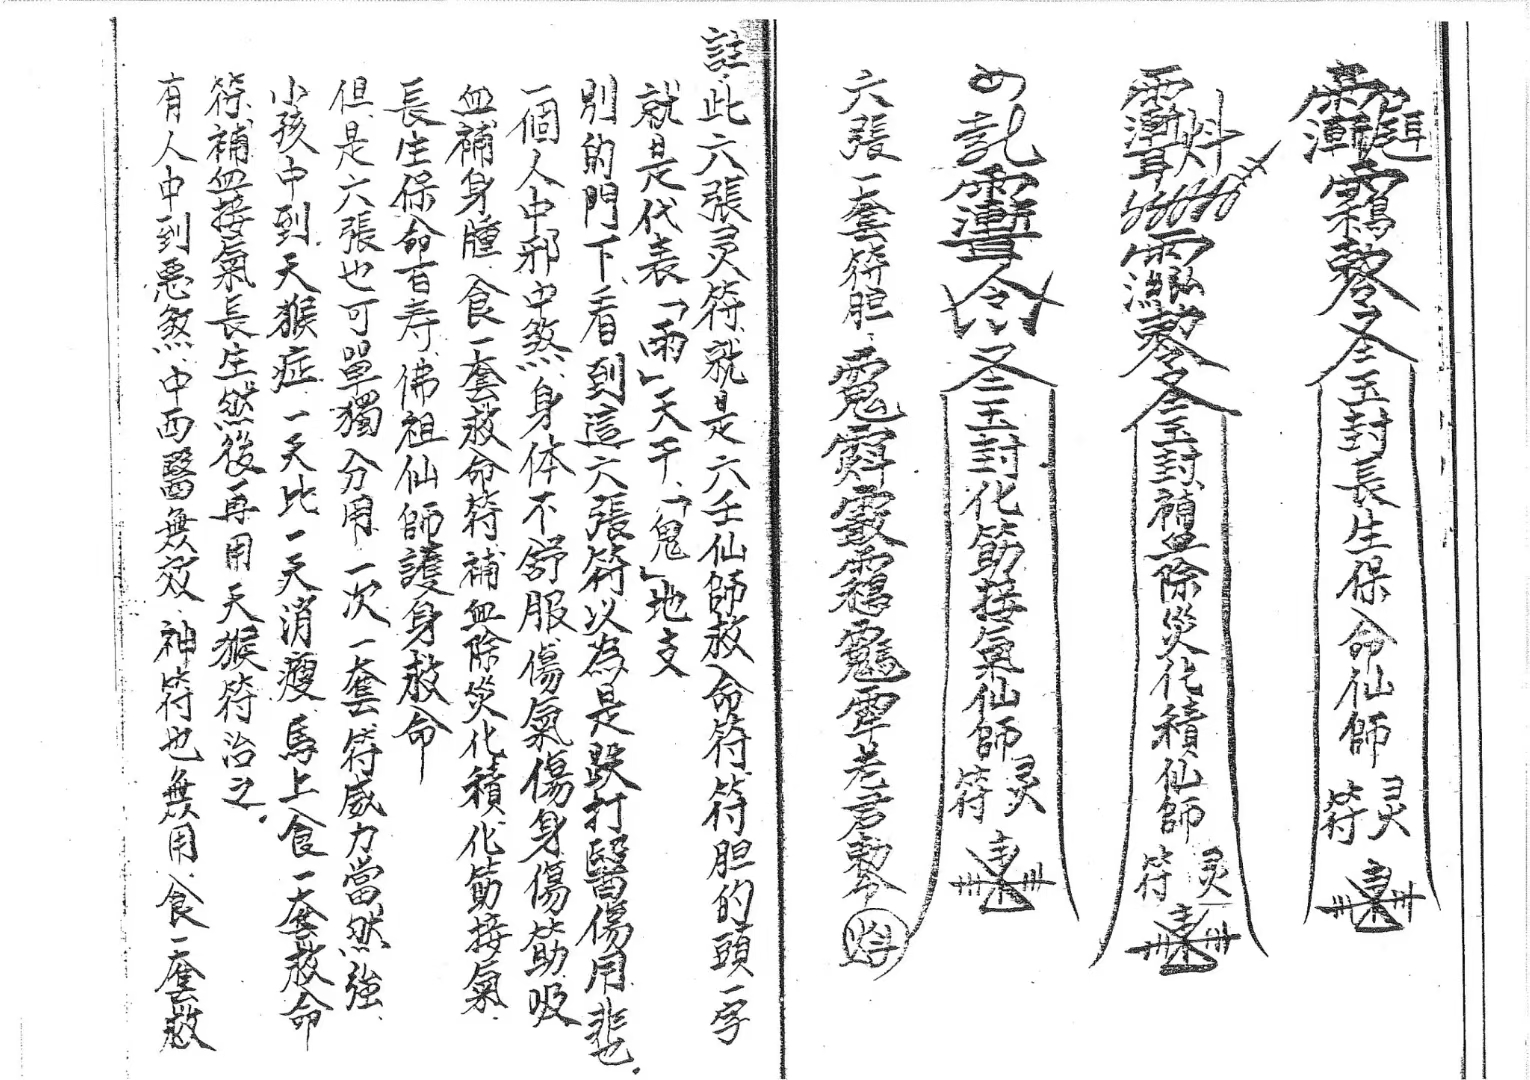 玉封長生保命仙師灵符
玉封補血除災化積仙師灵符
玉封化筋接氣仙師灵符
六張一套符胆：老君勅令
註：此六張灵符、就是六壬仙師救命符、符胆的頭一字
就是代表「雨」天干、「鬼」地支
別的門下、看到這六張符以為是跌打醫傷用、非也.
一個人中邪中煞、身体不舒服、傷氣傷身傷筋、吸
血補身腫、食一套救命符、補血除災化積、化筋接氣、
長生保命百寿、佛祖仙師護身救命
但是六張也可單獨分用、一次一套符威力當然強.
小孩中到天猴症、一天比一天消瘦、馬上食一套救命
符、補血接氣長生、然後再用天猴符治之.
有人中到惡煞、中西醫無效、神符也無用、食一套救